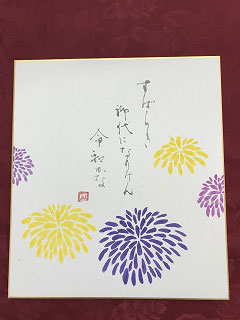 すばらしき
御代になりけん
令和かな